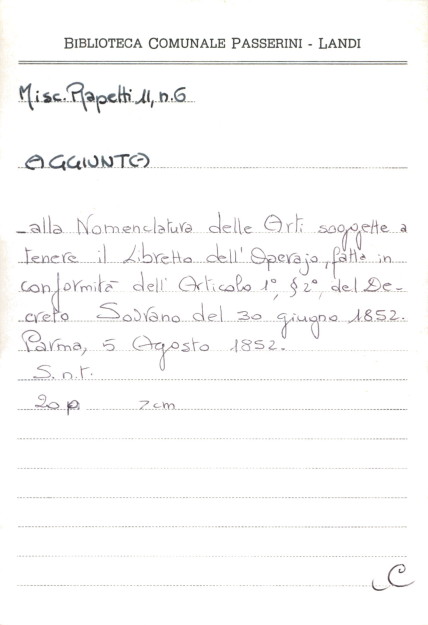 BIBLIOTECA COMUNALE PASSERINI - LANDI
Misc. Rapetti 11, n. 6
AGGIUNTA
- alla Nomenclatura delle Arti soggette a
tenere il Libretto dell'Operajo, fatta in
conformità dell'Articolo 1°, § 2°, del De-
creto Sovrano del 30 giugno 1852.
Parma, 5 Agosto 1852.
S.n.t.
20 p. 7 cm
C